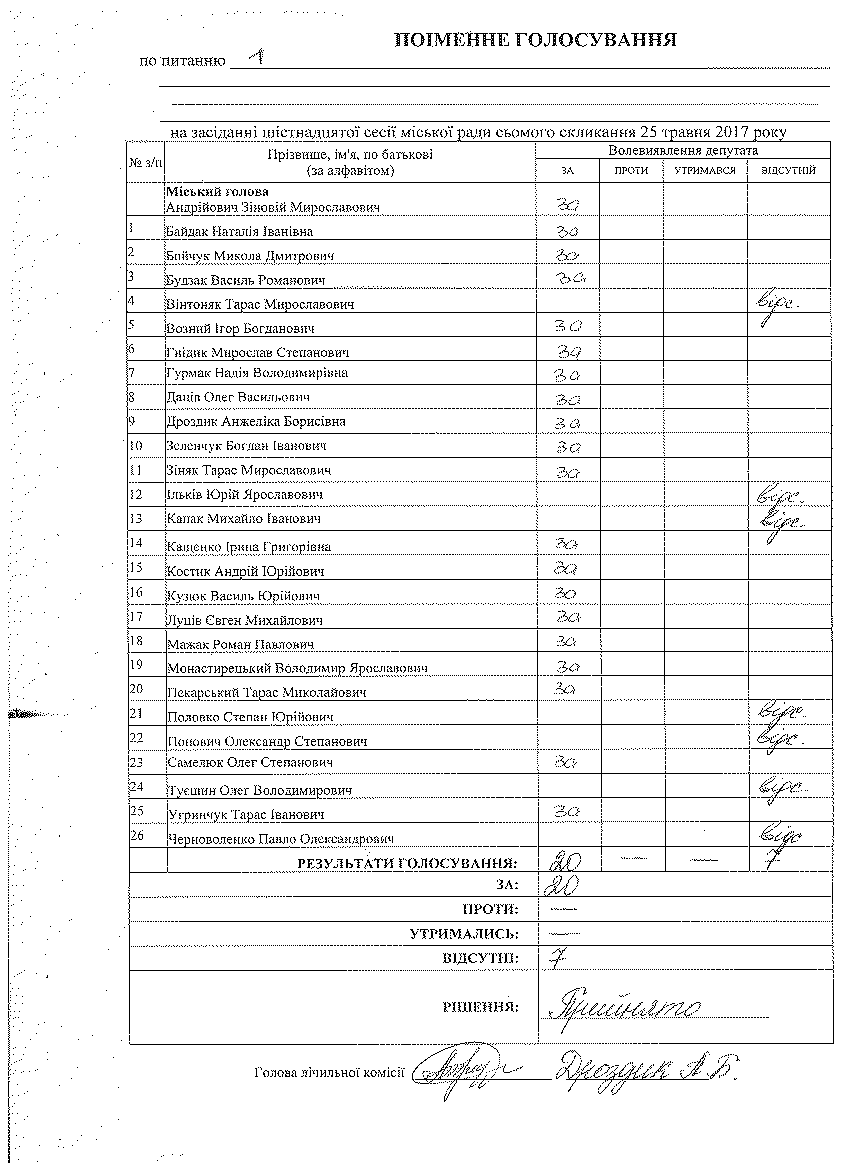 ПОІМЕННЕ ГОЛОСУВАННЯ
по питанню 1
на засіданні шістнадцятої сесії міської ради сьомого скликання 25 травня 2017 року
№ з/п Прізвище, ім'я, по батькові (за алфавітом) Волевиявлення депутата
ЗА ПРОТИ УТРИМАВСЯ ВІДСУТНІЙ
Міський голова
Андрійович Зіновій Мирославович за
1 Байдак Наталія Іванівна за
2 Бойчук Микола Дмитрович за
3 Будзак Василь Романович за
4 Вінтоняк Тарас Мирославович відс.
5 Возний Ігор Богданович за
6 Гнідик Мирослав Степанович за
7 Гурмак Надія Володимирівна за
8 Даців Олег Васильович за
9 Дроздик Анжеліка Борисівна за
10 Зеленчук Богдан Іванович за
11 Зіняк Тарас Мирославович за
12 Ільків Юрій Ярославович відс.
13 Капак Михайло Іванович відс.
14 Кащенко Ірина Григорівна за
15 Костик Андрій Юрійович за
16 Кузюк Василь Юрійович за
17 Луців Євген Михайлович за
18 Мажак Роман Павлович за
19 Монастирецький Володимир Ярославович за
20 Пекарський Тарас Миколайович за
21 Половко Степан Юрійович відс.
22 Попович Олександр Степанович відс.
23 Самелюк Олег Степанович за
24 Туєшин Олег Володимирович відс.
25 Угринчук Тарас Іванович за
26 Черноволенко Павло Олександрович відс
РЕЗУЛЬТАТИ ГОЛОСУВАННЯ: 20 — — 7
ЗА: 20
ПРОТИ: —
УТРИМАЛИСЬ: —
ВІДСУТНІ: 7
РІШЕННЯ: Прийнято
Голова лічильної комісії Дроздик А.Б.